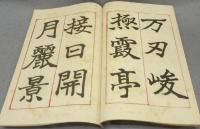 万刃峻
極霞亭
接日開
月麗景